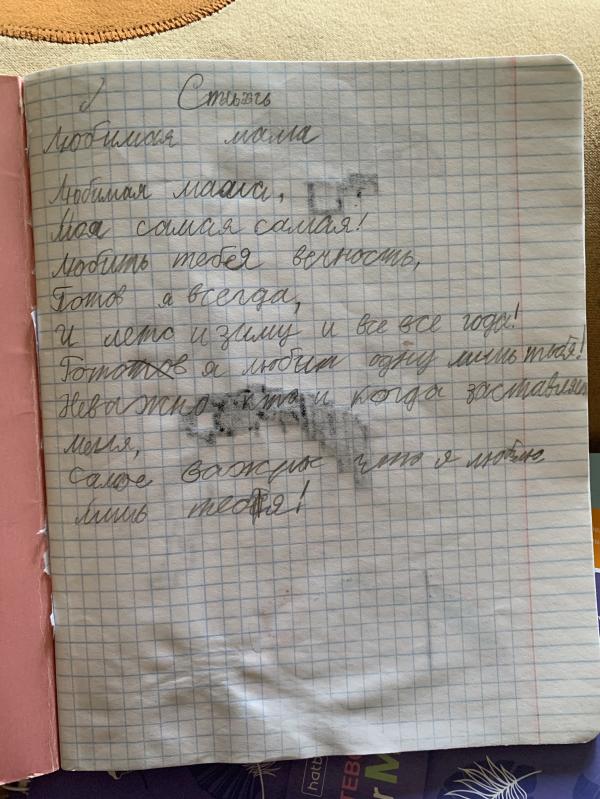 Стихъ
Любимая мама
Любимая мама,
Моя самая самая!
Любить тебея вечность,
Готов я всегда,
И лето и зиму и все все года!
Готов я любит одну лишь тебя!
Неважно кто и когда заставляет
меня,
Самое важное что я люблю
лишь тебя!
hatb
ТЕВО
M